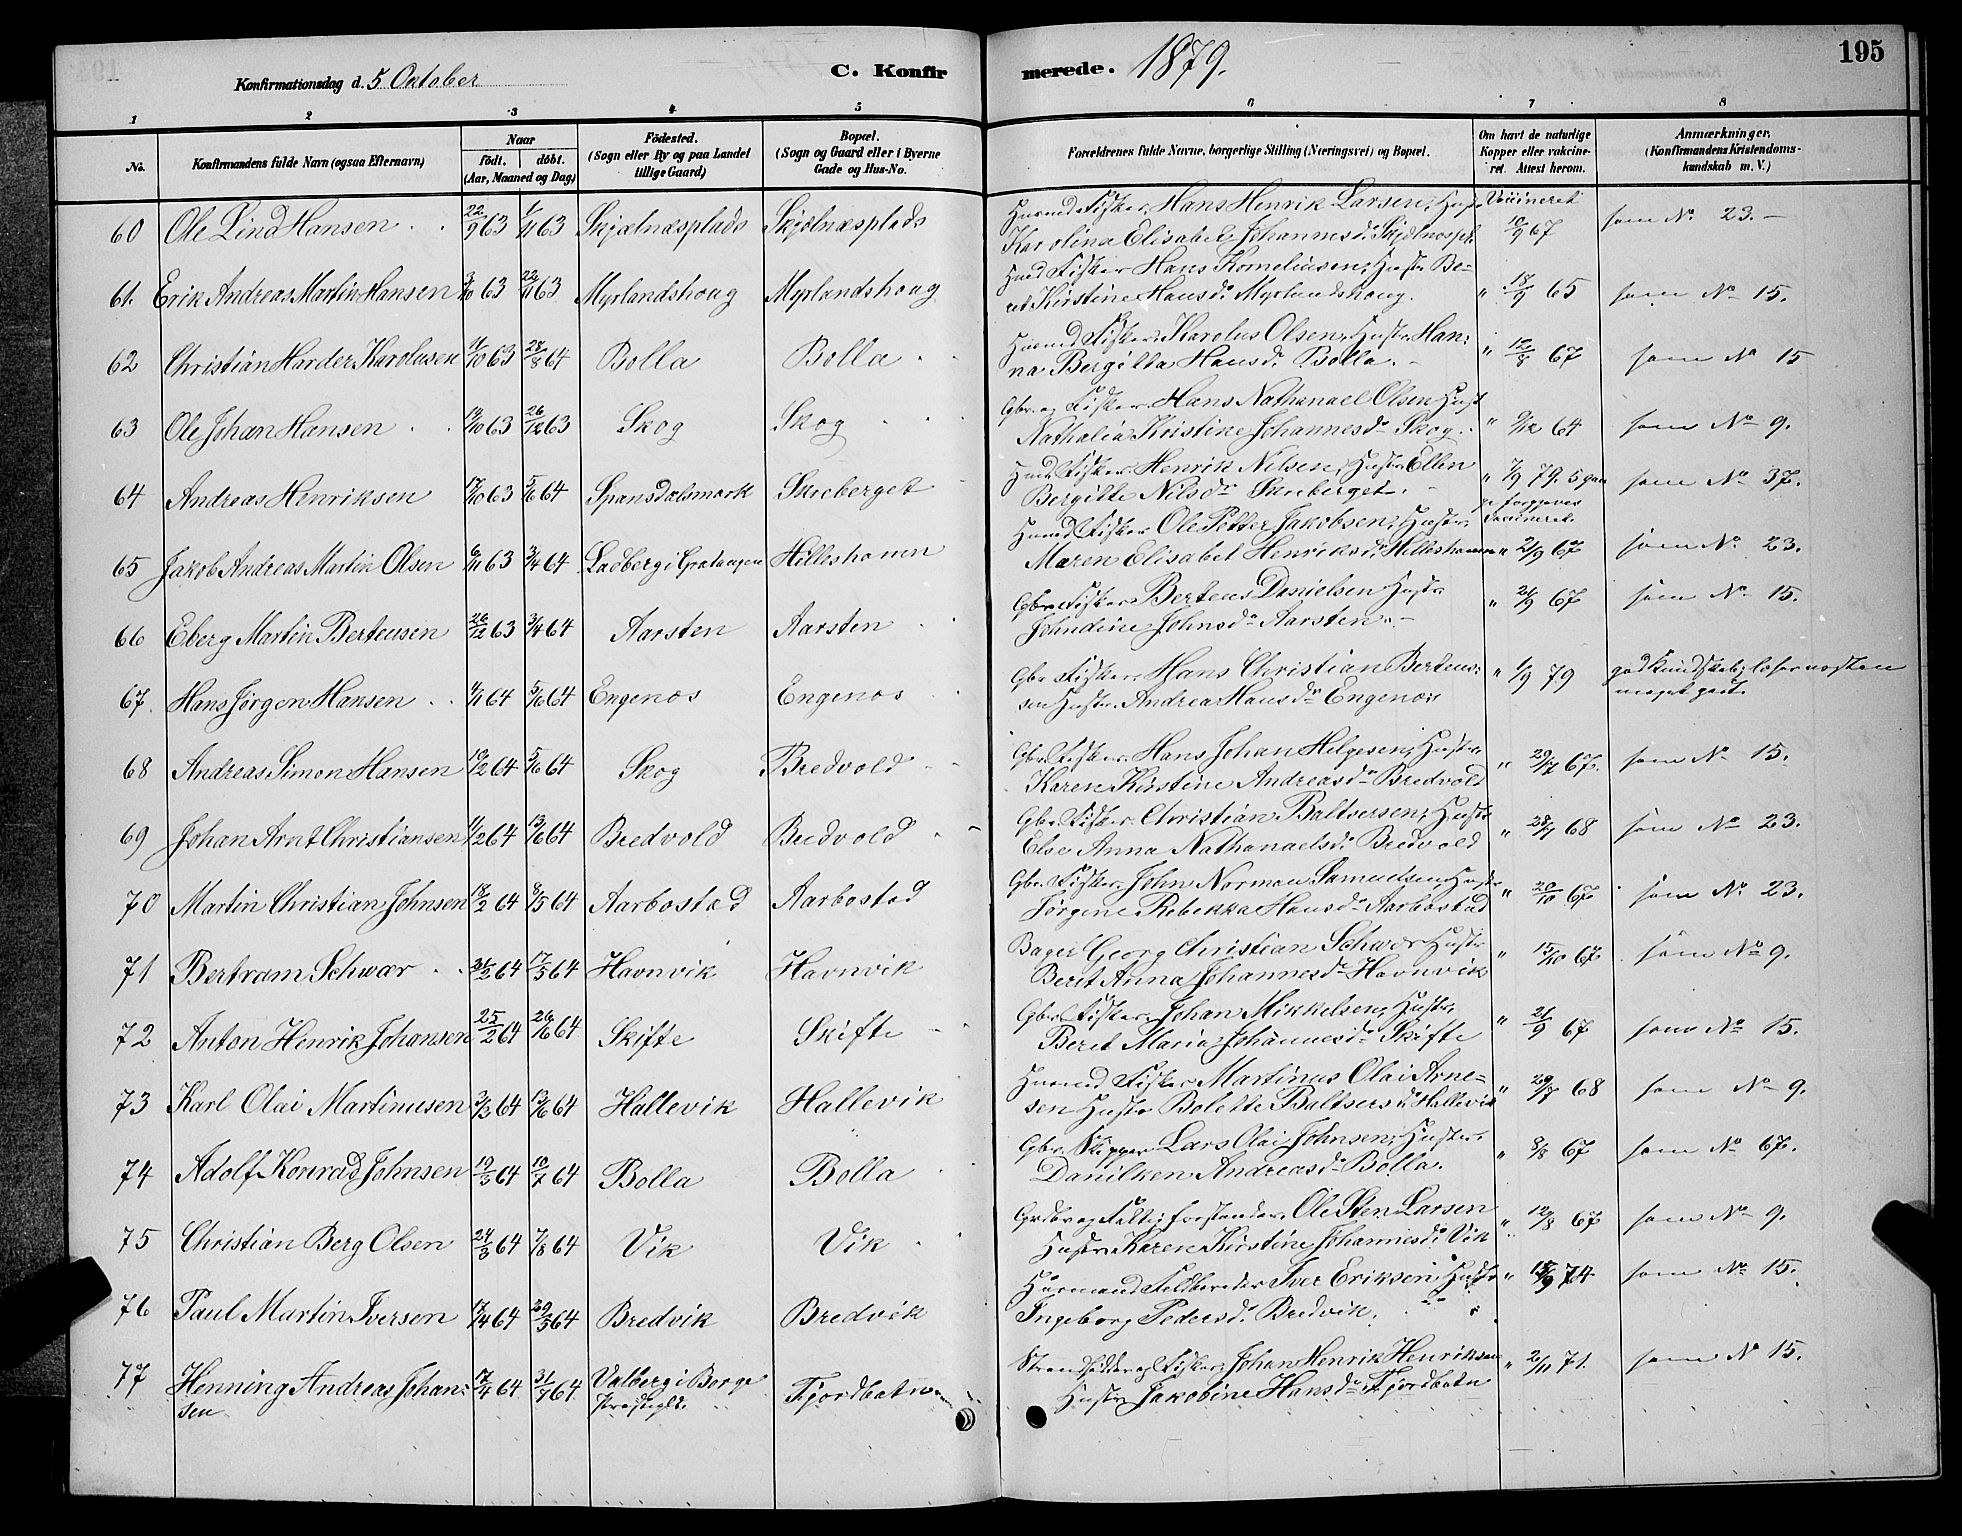 195
Konfirmationsdag d. 5 Oktober C. Konfirmerede. 1879.
1 2 3 4 5 6 7 8
No. Konfirmandens fulde Navn (ogsaa Efternavn) Naar födt. döbt. (Aar, Maaned og Dag) Födested. (Sogn eller By og paa Landet tillige Gaard) Bopæl. (Sogn og Gaard eller i Byerne Gade og Hus-No. Forældrenes fulde Navne, borgerlige Stilling (Næringsvei) og Bopæl. Om havt de naturlige Kopper eller vakcineret. Attest herom. Anmærkninger. (Konfirmandens Kristendomskundskab m. V.)
60 Ole Lind Hansen 22/9 63 1/11 63 Skjælnæsplads Skjelnæsplads Fisker Hans Henrik Larsen, Hust.
Karolina Elisabet Johannesd. Vaccineret 10/9 67 som No 23.
61. Erik Andreas Martin Hansen 3/10 63 22/11 63 Myrlandshaug Myrlandshaug Fisker Hans Korneliusen, Hustr. Be-
ret Kirstine Hansd. Myrlandshaug. " 18/9 65 som No 15.
62 Christian Harder Karolusen 11/10 63 28/8 64 Bolla Bolla Fisker Karolus Olsen, Hustr. Han-
na Bergitta Hansd. Bolla. " 12/8 67 som No 15
63 Ole Johan Hansen 13/10 63 26/12 63 Skog Skog Gbr. og Fisker Hans Nathanael Olsen Hust
Nathalia Kristine Johannesd. Skog. " 9/12 64 som No 9.
64 Andreas Henriksen 17/10 63 5/6 64 Spansdalsmark Skreberget Fisker Henrik Nilsen, Hustr. Ellen
Bergitte Nilsd. Skreberget. " 7/9 79. 5 gan
ge forgjæves
vaccineret. som No 37.
65 Jakob Andreas Martin Olsen 6/11 63 3/4 64 Ladberg i Gratangen Hilleshamn Fisker Ole Petter Jakobsen, Hustr.
Maren Elisabet Henriksd. Hilleshamn " 21/9 67 som No 23.
66 Eberg Martin Berteusen 26/12 63 3/4 64 Aarsten Aarsten Gbr. Fisker Berteus Danielsen Hustr
Johndine Johnsd. Aarsten. " 21/9 67 som No 15.
67. Hans Jørgen Hansen 4/1 64 5/6 64 Engenæs Engenæs Gbr. Fisker Hans Christian Berteus-
sen Hustr. Andrea Hansd. Engenæs " 1/9 79 god Kundskab; læser næsten
meget godt.
68 Andreas Simon Hansen 13/2 64 5/6 64 Skog Bredvold Gbr. Fisker Hans Johan Helgesen, Hustr.
Karen Kirstine Andreasd. Bredvold " 29/7 67. som No 15.
69 Johan Arnt Christiansen 11/2 64 13/6 64 Bredvold Bredvold Gbr. Fisker Christian Baltsersen, Hustr
Else Anna Nathanaelsd. Bredvold " 28/7 68 som No 23.
70 Martin Christian Johnsen 18/2 64 8/5 64 Aarbostad Aarbostad Gbr. Fisker John Norman Samuelsen, Hustr
Jørgine Rebekka Hansd. Aarbostad " 20/10 67 som No 23.
71 Bertram Schwær 17/5 64 Havnvik Havnvik Bager Georg Christian Schwær Hustr
Berit Anna Johannesd. Havnvik " 15/10 67 som No 9.
72 Anton Henrik Johansen 25/2 64 26/6 64 Skifte Skifte Gbr. Fisker Johan Mikkelsen, Hustr.
Beret Maria Johannesd. Skifte " 21/9 67 som No 15.
73 Karl Olai Martinusen 3/3 64 13/6 64 Hallevik Hallevik Husmd Fisker Martinus Olai Arne-
sen Hustr Bolette Baltsersd. Hallevik " 29/7 68 som No 9.
74 Adolf Konrad Johnsen 19/3 64 10/7 64 Bolla Bolla Gbr. Skipper Lars Olai Johnsen, Hustr.
Danilken Andreasd. Bolla. " 9/8 67 som No 67.
75 Christian Berg Olsen 24/3 64 7/8 64 Vik Vik Ole Sten Larsen
Hustr. Karen Kirstine Johannesd. Vik " 12/8 67 som No 9.
76 Paul Martin Iversen 17/4 64 29/5 64 Bredvik Bredvik Husmand Feldbereder Iver Eriksen, Hustr
Ingeborg Pedersd. Bredvik. " 74 som No 15.
77 Henning Andreas Johan-
sen 17/4 64 31/7 64 Valberg i Borge
Præstegld. Fjordbotn Strandsidder og Fisker Johan Henrik Henriksen
Hustr Jakobine Hansd. Fjordbotn " 2/11 71. som No 15.